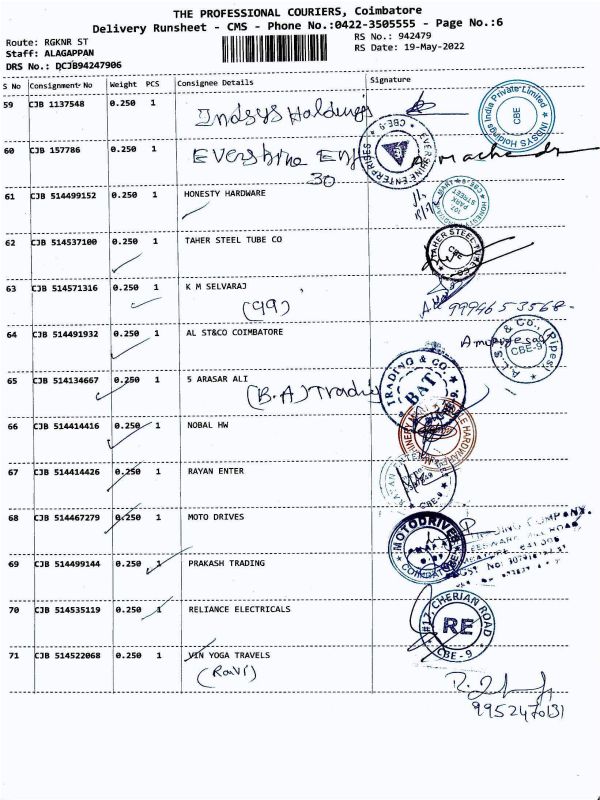 THE PROFESSIONAL COURIERS, Coimbatore
Delivery Runsheet - CMS - Phone No.:0422-3505555 - Page No.:6
Route: RGKNR ST RS No.: 942479
Staff: ALAGAPPAN RS Date: 19-May-2022
DRS No.: DCJB94247906
S No Consignment No Weight PCS Consignee Details Signature
59 CJB 1137548 0.250 1 Indsys Holdings
INDSYS Holdings India Private Limited CBE
60 CJB 157786 0.250 1 Evershine Enf
30
EVERSHINE ENTERPRISES CBE-9
61 CJB 514499152 0.250 1 HONESTY HARDWARE
62 CJB 514537100 0.250 1 TAHER STEEL TUBE CO
TAHER STEEL TUBE CO CBE
63 CJB 514571316 0.250 1 K M SELVARAJ
(99) 9994653568-
64 CJB 514491932 0.250 1 AL ST&CO COIMBATORE
& Co., (Pipes) CBE-9
65 CJB 514134667 0.250 1 5 ARASAR ALI
(B.A) Trading
TRADING & CO. BAT
66 CJB 514414416 0.250 1 NOBAL HW
67 CJB 514414426 0.250 1 RAYAN ENTER
CBE-9
68 CJB 514467279 0.250 1 MOTO DRIVES
MOTODRIVES
69 CJB 514499144 0.250 1 PRAKASH TRADING
70 CJB 514535119 0.250 1 RELIANCE ELECTRICALS
#17, CHERIAN ROAD RE CBE-9
71 CJB 514522068 0.250 1 VIN YOGA TRAVELS
(Ravi)
9952470131